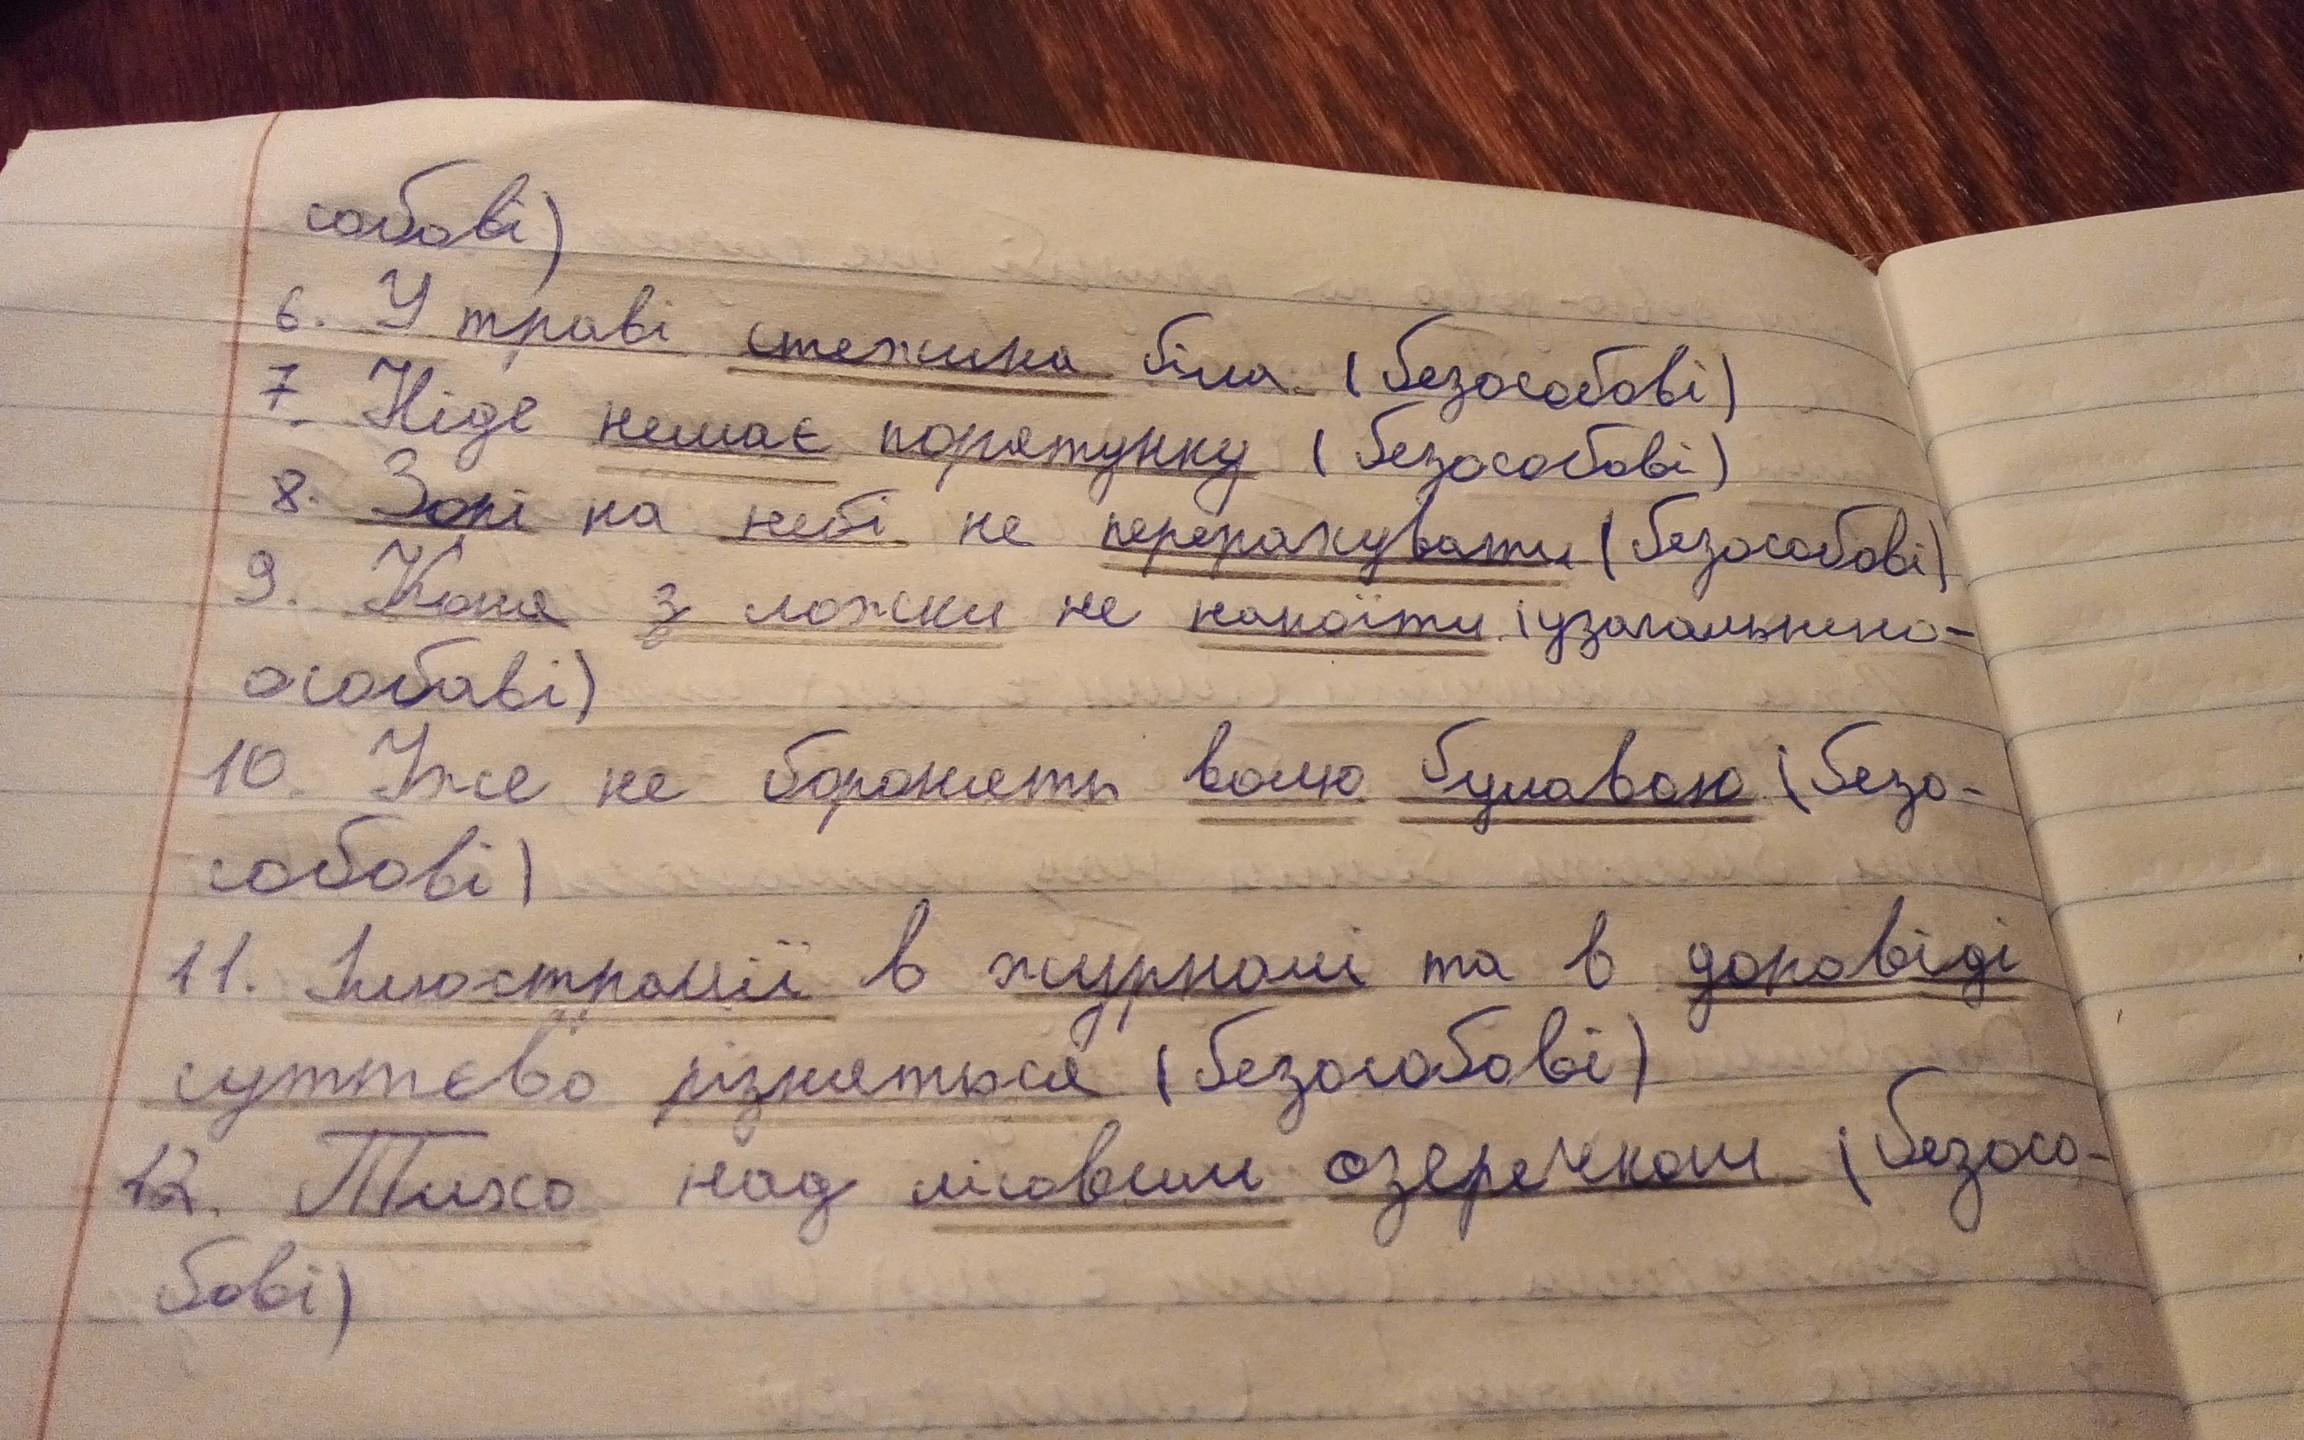 собові)
6. У траві стежина біла. (безособові)
7. Ніде немає порятунку (безособові)
8. Зорі на небі не перерахувати (безособові)
9. Коня з ложки не напоїти. (узагальнено-
особаві)
10. Уже не боронять волю булавою. (безо-
собові)
11. Ілюстрації в журналі та в доповіді
суттєво різняться (безособові)
12. Тихо над лісовим озеречком (безосо-
бові)